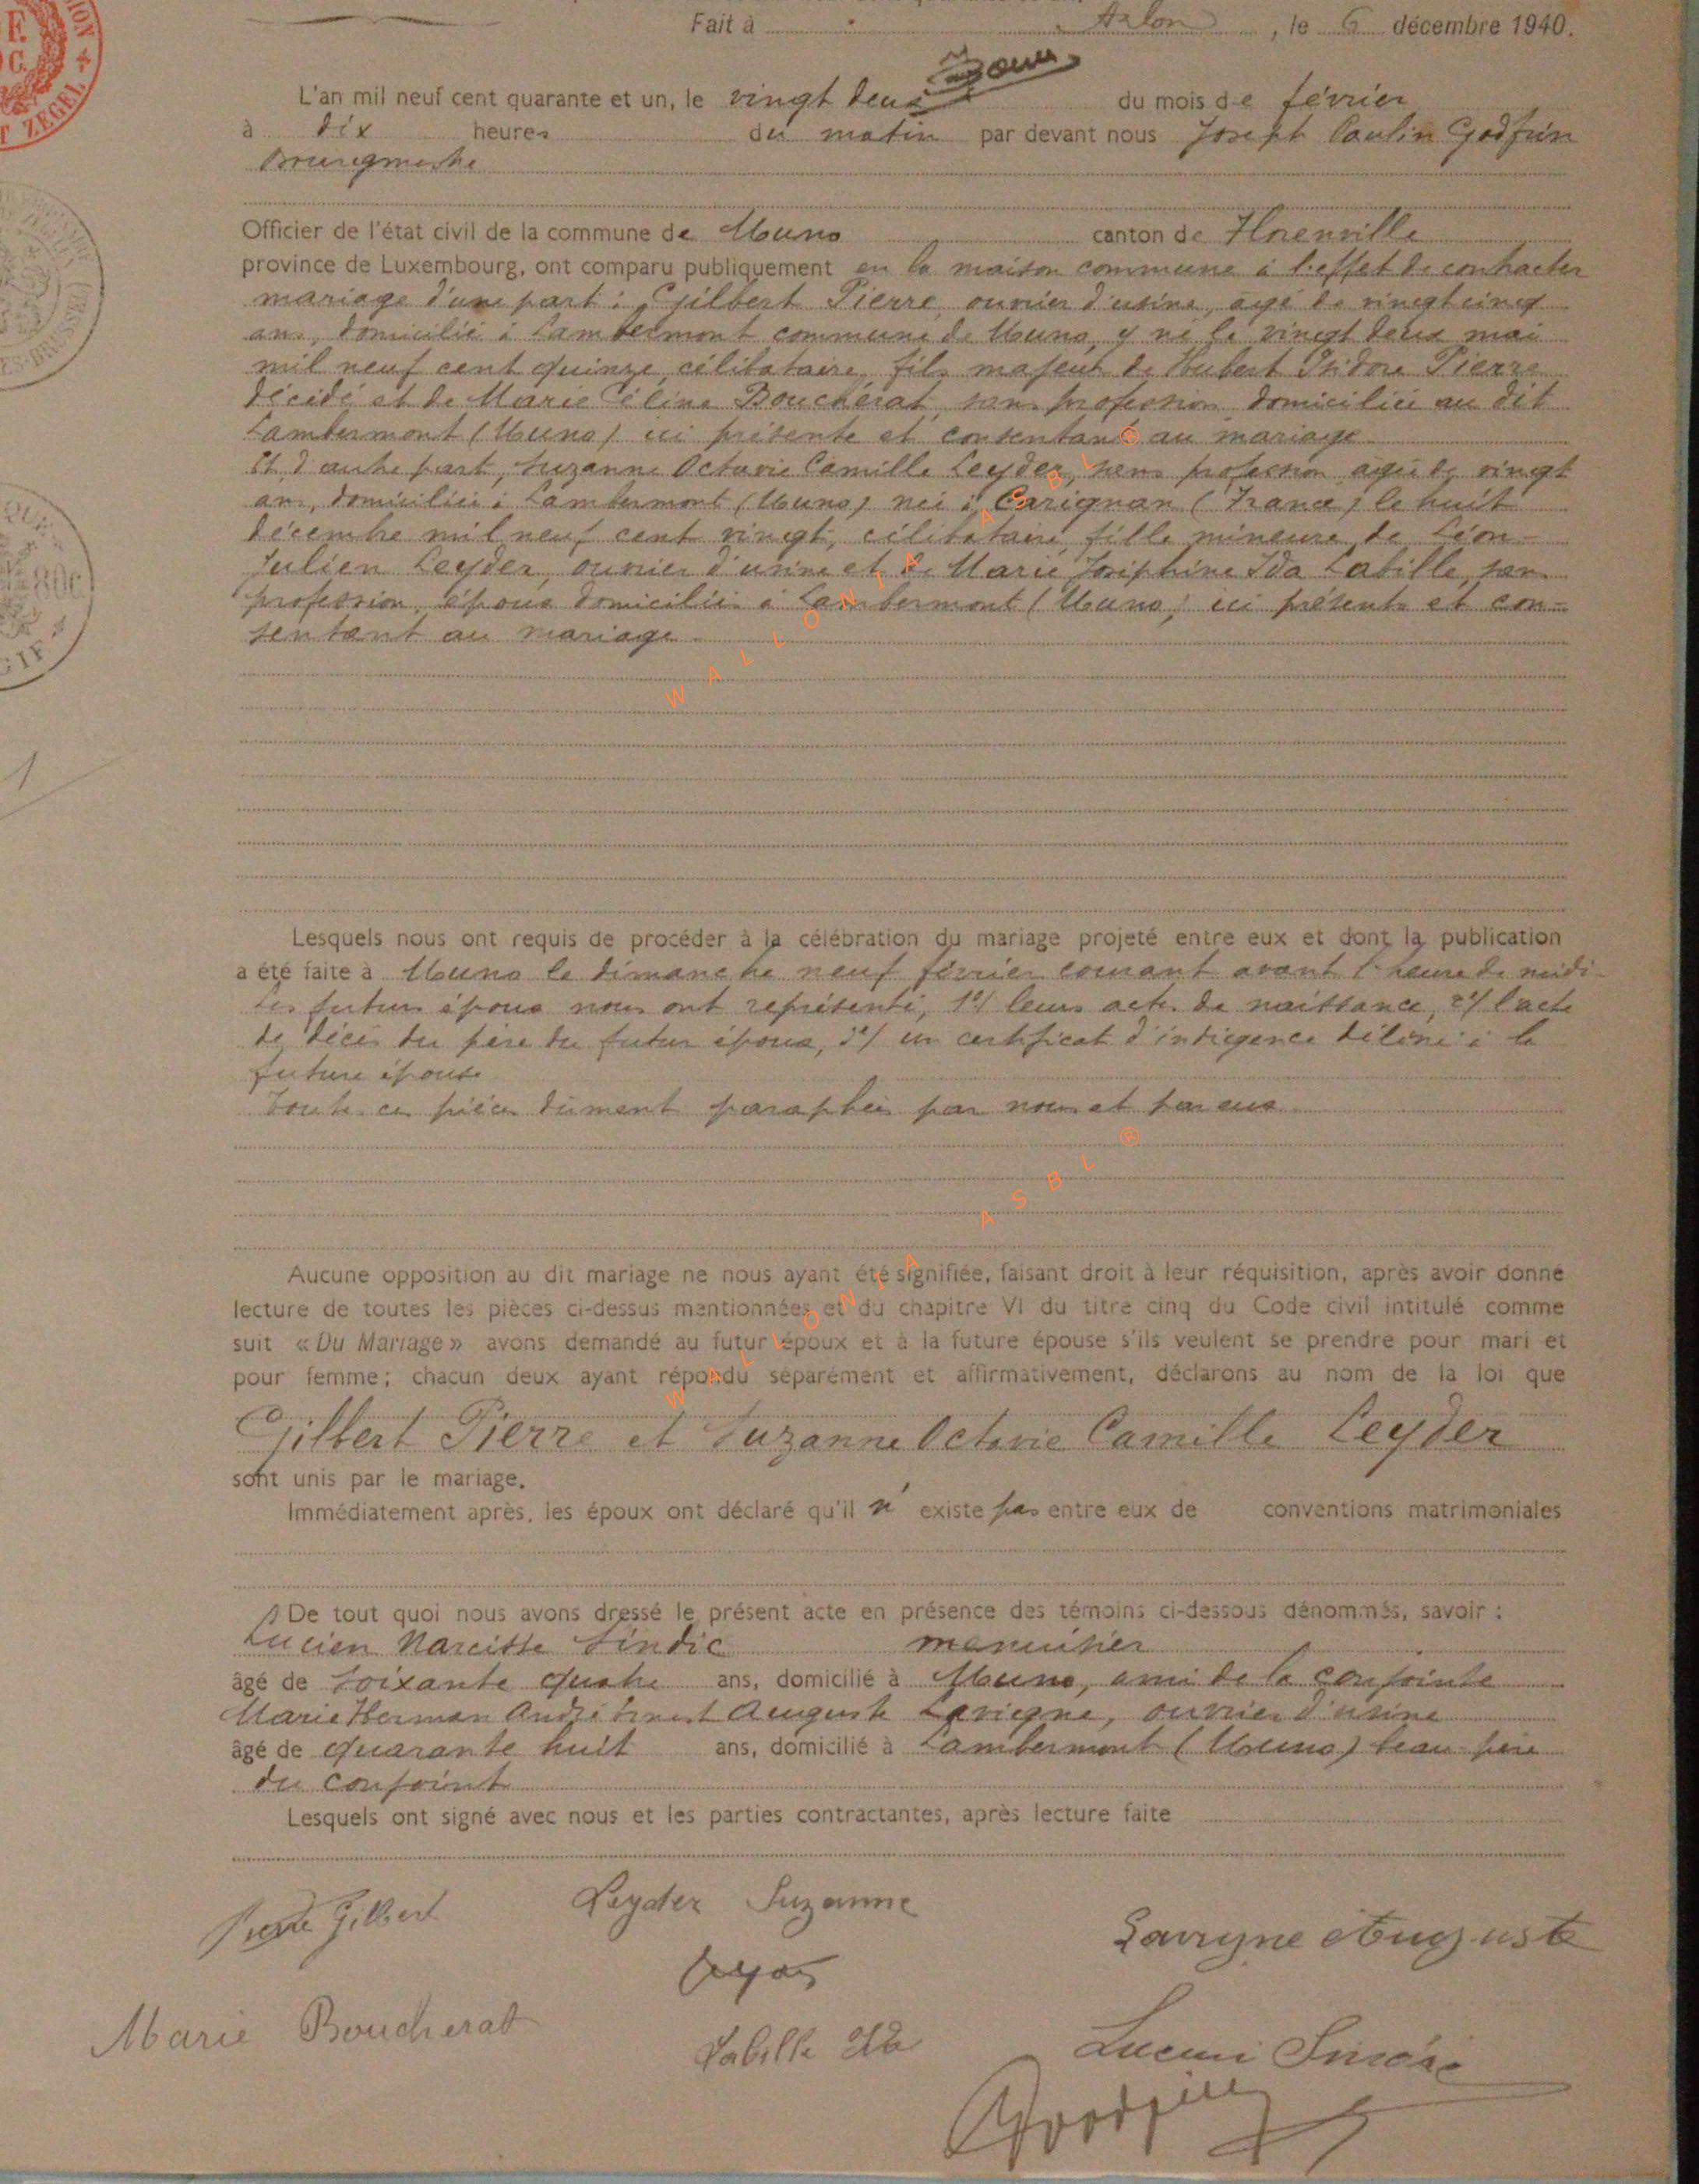 Fait à Arlon, le 6 décembre 1940.
L'an mil neuf cent quarante et un, le vingt deux du mois de février
à dix heures du matin par devant nous Joseph Paulin Godfrin
Bourgmestre
Officier de l'état civil de la commune de Muno canton de Florenville
province de Luxembourg, ont comparu publiquement en la maison commune à l'effet de contracter
mariage d'une part : Gilbert Pierre, ouvrier d'usine, âgé de vingt cinq
ans, domicilié à Lambermont commune de Muno, y né le vingt deux mai
mil neuf cent quinze, célibataire, fils majeur de Hubert Isidore Pierre
décédé et de Marie Céline Boucherat, sans profession, domiciliée au dit
Lambermont (Muno) ici présente et consentant au mariage.
Et d'autre part, Suzanne Octavie Camille Leyder, sans profession, âgée de vingt
ans, domiciliée à Lambermont (Muno) née à Carignan (France) le huit
décembre mil neuf cent vingt, célibataire, fille mineure de Léon-
Julien Leyder, ouvrier d'usine et de Marie Joséphine Ida Labille, sans
profession, époux domiciliés à Lambermont (Muno) ici présents et con-
sentant au mariage.
WALLONIA ASBL ®
Lesquels nous ont requis de procéder à la célébration du mariage projeté entre eux et dont la publication
a été faite à Muno le dimanche neuf février courant avant l'heure de midi-
Les futurs époux nous ont représenté, 1°/ leurs actes de naissance, 2°/ l'acte
de décès du père du futur époux, 3°/ un certificat d'indigence délivré à la
future épouse.
Toutes ces pièces dûment paraphées par nous et par eux.
WALLONIA ASBL ®
Aucune opposition au dit mariage ne nous ayant été signifiée, faisant droit à leur réquisition, après avoir donné
lecture de toutes les pièces ci-dessus mentionnées et du chapitre VI du titre cinq du Code civil intitulé comme
suit « Du Mariage » avons demandé au futur époux et à la future épouse s'ils veulent se prendre pour mari et
pour femme; chacun deux ayant répondu séparément et affirmativement, déclarons au nom de la loi que
Gilbert Pierre et Suzanne Octavie Camille Leyder
sont unis par le mariage.
Immédiatement après, les époux ont déclaré qu'il n'existe pas entre eux de conventions matrimoniales
De tout quoi nous avons dressé le présent acte en présence des témoins ci-dessous dénommés, savoir :
Lucien Narcisse Sindic menuisier
âgé de soixante quatre ans, domicilié à Muno, ami de la conjointe
Marie Herman André Ernest Auguste Lavigne, ouvrier d'usine
âgé de quarante huit ans, domicilié à Lambermont (Muno) beau-père
du conjoint
Lesquels ont signé avec nous et les parties contractantes, après lecture faite
Pierre Gilbert
Leyder Suzanne
Lavigne Auguste
Marie Boucherat
Labille Ida
Lucien Sindic